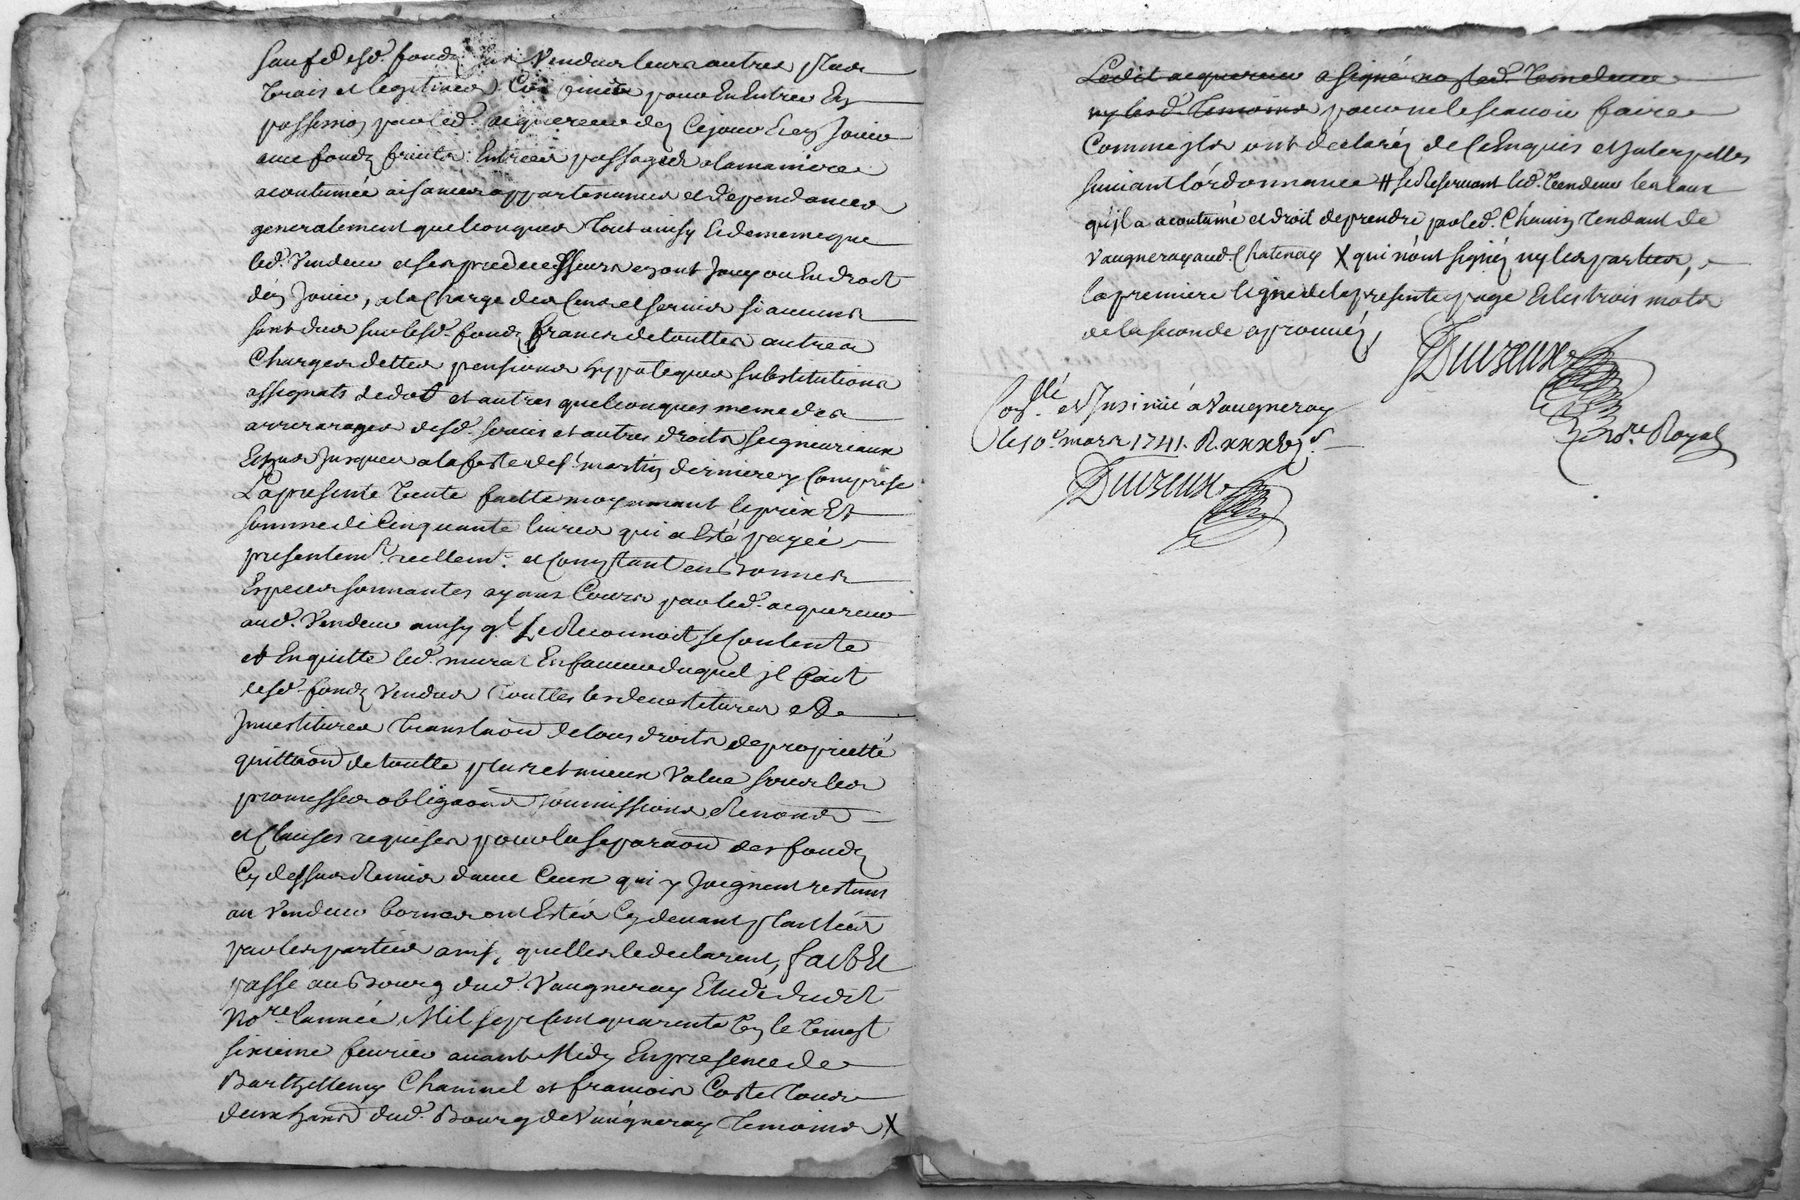 Sauf desd. fonds sus Vendus leurs autres plus
vrais et legitimes Confins pour En Entrer En
possession par led. acquereur dez Cejour Et en Jouir
avec fonds fruits Entrées passages a la maniere
acoutumée aisances appartenances et dependances
generalement quelconques Tout ainsy Et de meme que
led. Vendeur et ses predecesseurs en ont Jouy ou Eu droit
d'En Jouir, a la Charge des Cens et servis si aucuns
sont dus sur lesd. fonds francs de touttes autres
Charges dettes pensions hypoteques substitutions
assignats de dot et autres quelconques meme des
arrerages desd. servis et autres droits seigneuriaux
Echus Jusques a la feste de st. martin derniere y Comprise
La presente Vente faitte moyennant le prix Et
somme de Cinquante livres qui a Esté payée
presentemt. réellemt. et Comptant en Bonnes
Especes sonnantes ayant Cours par led. acquereur
aud. Vendeur ainsy ql. Le Reconnoit se Contente
et En quitte led. murat En faveur duquel il fait
desd. fonds Vendus touttes les devestitures et De
Investitures translaon de tous droits de proprietté
quittaon de toutte plus et mieux Value sous les
promesses obligaons soumissions Renons
et Clauses requises pour la separaon des fonds
Cy dessus Remis d'avec Ceux qui y Joignent restans
au Vendeur bornes ont Estés Cy devant plantées
par les parties ainsi, quelles le declarent, fait Et
passé au Bourg dud. Vaugneray Etude dudit
Nore. l'année Mil sept Cent quarente Un le Vingt
sixieme fevrier avant Midy En presence de
Barthellemy Chaninel et francois Coste Tous
deux habts dud. Bourg de Vaugneray Temoins X
Ledit acquereur a signé non led. Vendeur
ny lesd. Temoins pour ne le scavoir faire
Comme ils ont declarés de Ce Enquis et Interpellés
suivant l'ordonnance # se Reservant led. Vendeur les eaux
qu'il a acoutumé et droit de prendre par led. Chemin Tendant de
Vaugneray aud. Chatenay X qui n'ont signés ny les parties,
la premiere ligne de la presente page Et les trois mots
de la seconde aprouvés
Duvzeux
Nore. Royal
Conllé. et Insinué à Vaugneray
le 10e. mars 1741. R. xxx
Duvzeux